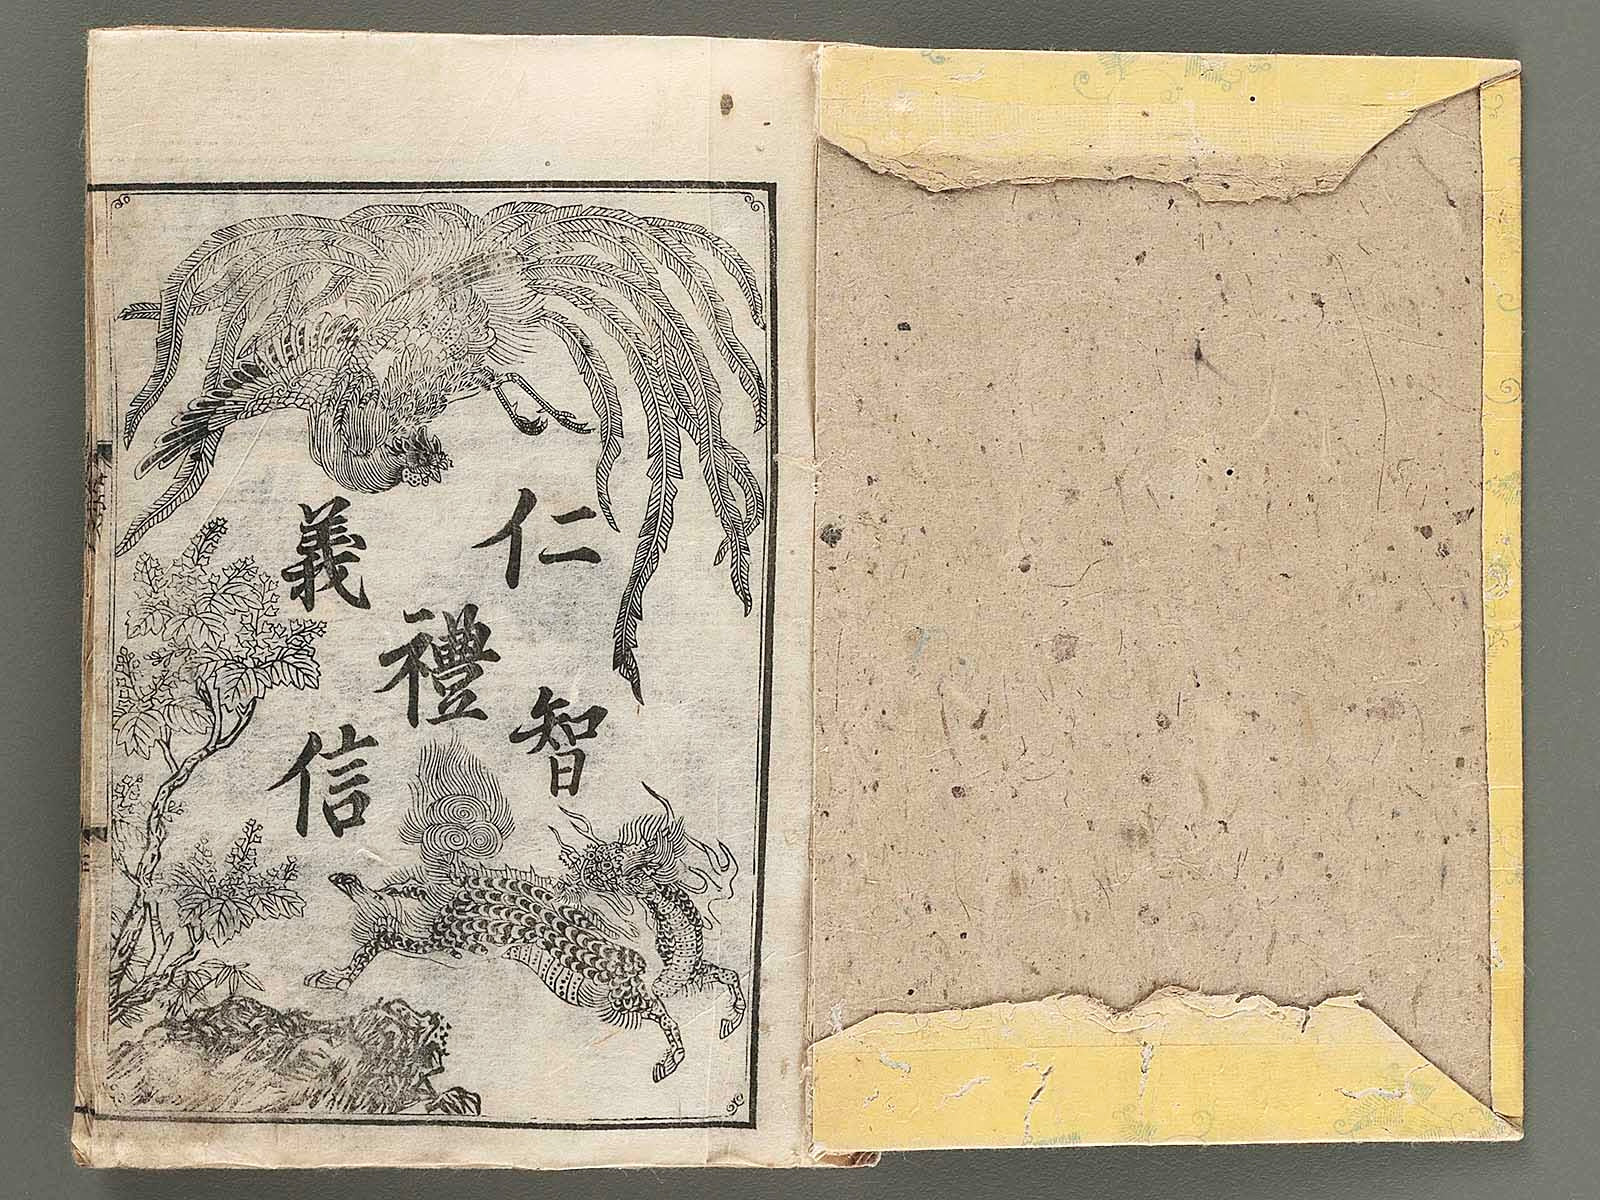 仁
義
禮
智
信